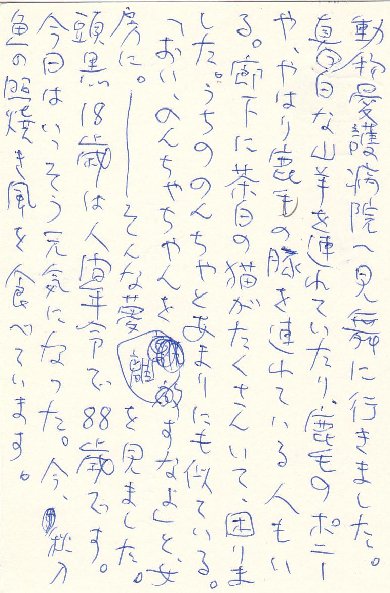 動物愛護病院へ見舞に行きました。
真白な山羊を連れていたり、鹿毛のポニー
や、やはり鹿毛の豚を連れている人もい
る。廊下に茶白の猫がたくさんいて、困りま
した。うちののんちゃとあまりにも似ている。
「おい、のんちゃちゃんを離すなよ」と、女
房に。――そんな夢を見ました。
頭黒18歳は人間年令で88歳です。
今日はいっそう元気になった。今、秋刀
魚の照焼き風を食べています。